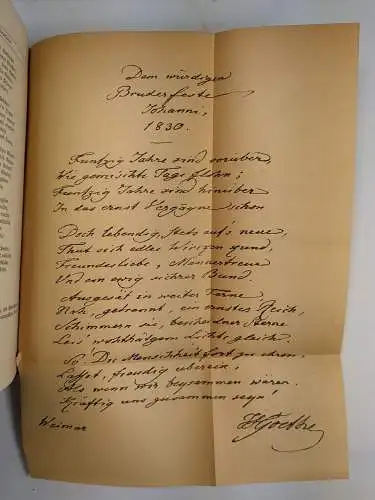 Dem würdigen
Bruderfeste
Johanni,
1830.
Funfzig Jahre sind vorüber,
Wie gemischte Tage flohn;
Funfzig Jahre sind hinüber
In das ernst Vergangne schon
Doch lebendig, stets aufs neue,
Thut sich edles Wirken kund,
Freundesliebe, Männertreue
Und ein ewig sichrer Bund.
Ausgesät in weiter Ferne,
Nah, getrennt, ein ernstes Reich,
Schimmern sie, bescheidner Sterne
Leis' wohlthätgem Licht, gleich.
So! Die Menschheit fort zu ehren,
Lasset, freudig überein,
Als wenn wir beysammen wären,
Kräftig uns zusammen seyn!
Weimar
JWGoethe